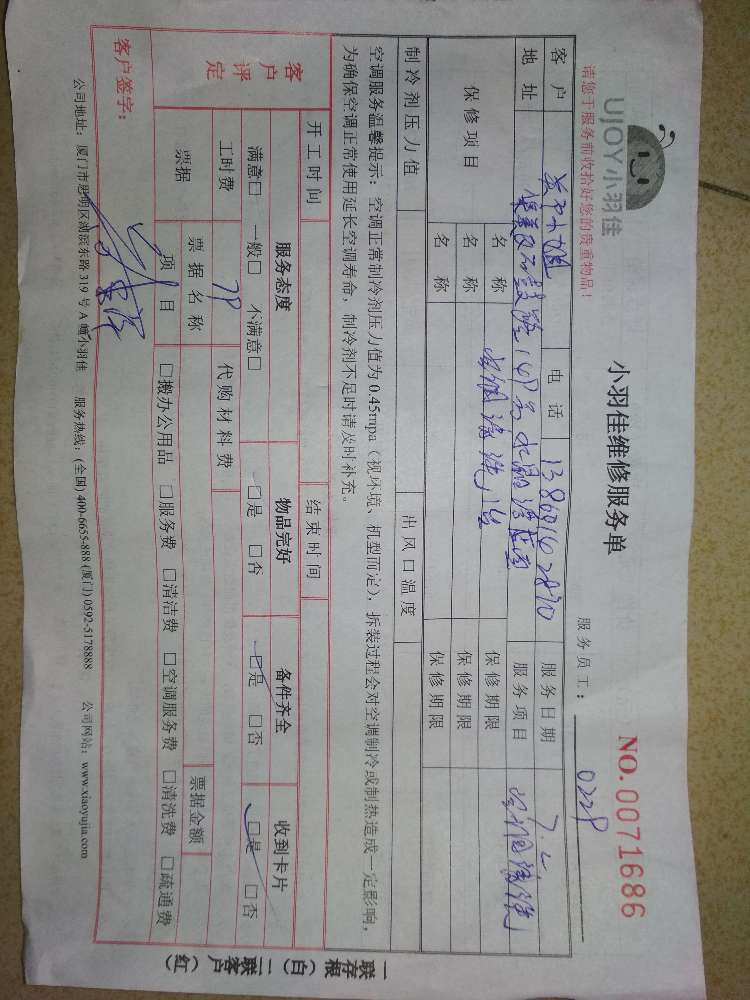 UJOY小羽佳
小羽佳维修服务单
NO.0071686
请您于服务前收拾好您的贵重物品!
服务员工: 0228
客户 电话 服务日期 7.2
地址 服务项目 空调清洗
保修项目 名称 空调清洗 保修期限
名称 保修期限
名称 保修期限
制冷剂压力值 出风口温度
空调服务温馨提示:空调正常制冷剂压力值为0.45mpa(视环境、机型而定),拆装过程会对空调制冷或制热造成一定影响,
为确保空调正常使用延长空调寿命,制冷剂不足时请及时补充。
开工时间 结束时间
客户评定 服务态度 物品完好 备件齐全 收到卡片
满意□ 一般□ 不满意□ □是 □否 □是 □否 □是 □否
工时费 代购材料费
票据 票据名称 票据金额
项目 □搬办公用品 □服务费 □清洁费 □空调服务费 □清洗费 □疏通费
客户签字:
公司地址:厦门市思明区湖滨东路319号A幢小羽佳 服务热线:(全国)400-6655-888(厦门)0592-5178888 公司网站:www.xiaoyujia.com
一联存根(白) 二联客户(红)